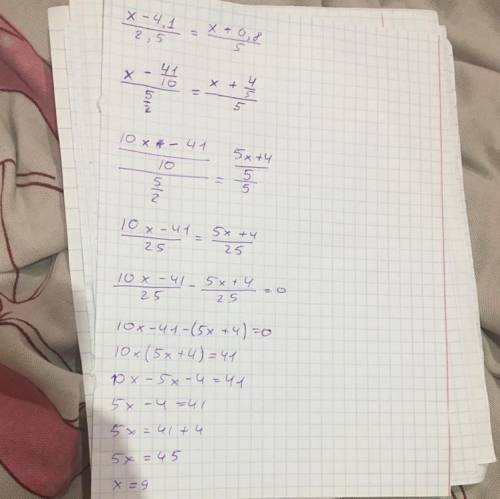 x - 4,1 / 2,5 = x + 0,8 / 5
x - 41/10 / 5/2 = x + 4/5 / 5
10x - 41 / 10 / 5/2 = 5x+4 / 5 / 5
10x - 41 / 25 = 5x + 4 / 25
10x - 41 / 25 - 5x + 4 / 25 = 0
10x - 41 - (5x + 4) = 0
10x (5x + 4) = 41
10x - 5x - 4 = 41
5x - 4 = 41
5x = 41 + 4
5x = 45
x = 9